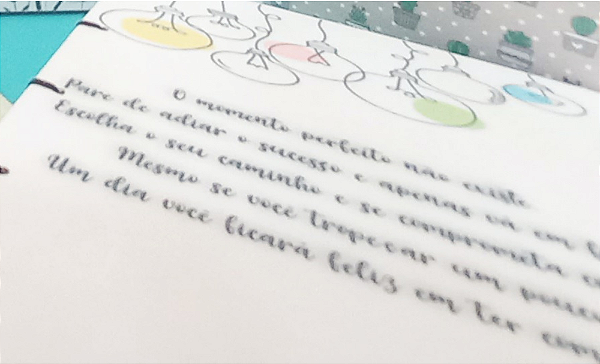 O momento perfeito não existe
Pare de adiar o sucesso e apenas vá em
Escolha o seu caminho e se comprometa
Mesmo se você tropeçar um pouco
Um dia você ficará feliz em ter